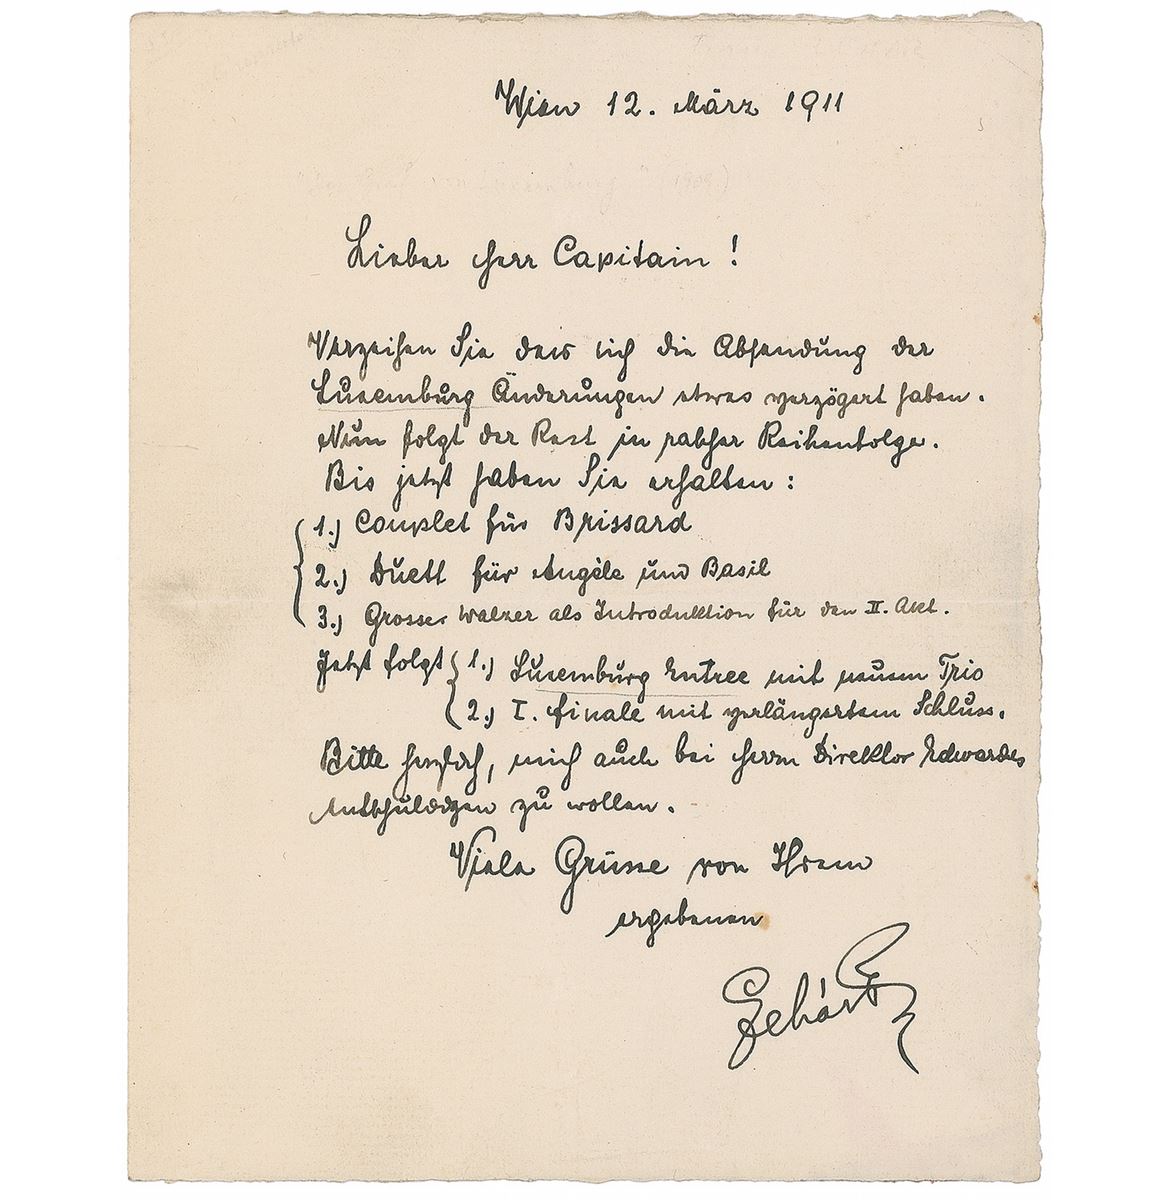 Wien 12. März 1911
"Der Graf von Luxemburg" (1909)
Lieber Herr Capitain!
Verzeihen Sie dass ich die Absendung der
Luxemburg Änderungen etwas verzögert haben.
Nun folgt der Rest in rascher Reihenfolge.
Bis jetzt haben Sie erhalten:
1.) Couplet für Brissard
2.) Duett für Angèle und Basil
3.) Grosser Walzer als Introduktion für den II. Akt.
Jetzt folgt 1.) Luxemburg Entree mit neuem Trio
2.) I. Finale mit verlängertem Schluss.
Bitte herzlich, mich auch bei Herrn Direktor Edwardes
entschuldigen zu wollen.
Viele Grüsse von Ihrem
ergebenen
Lehár